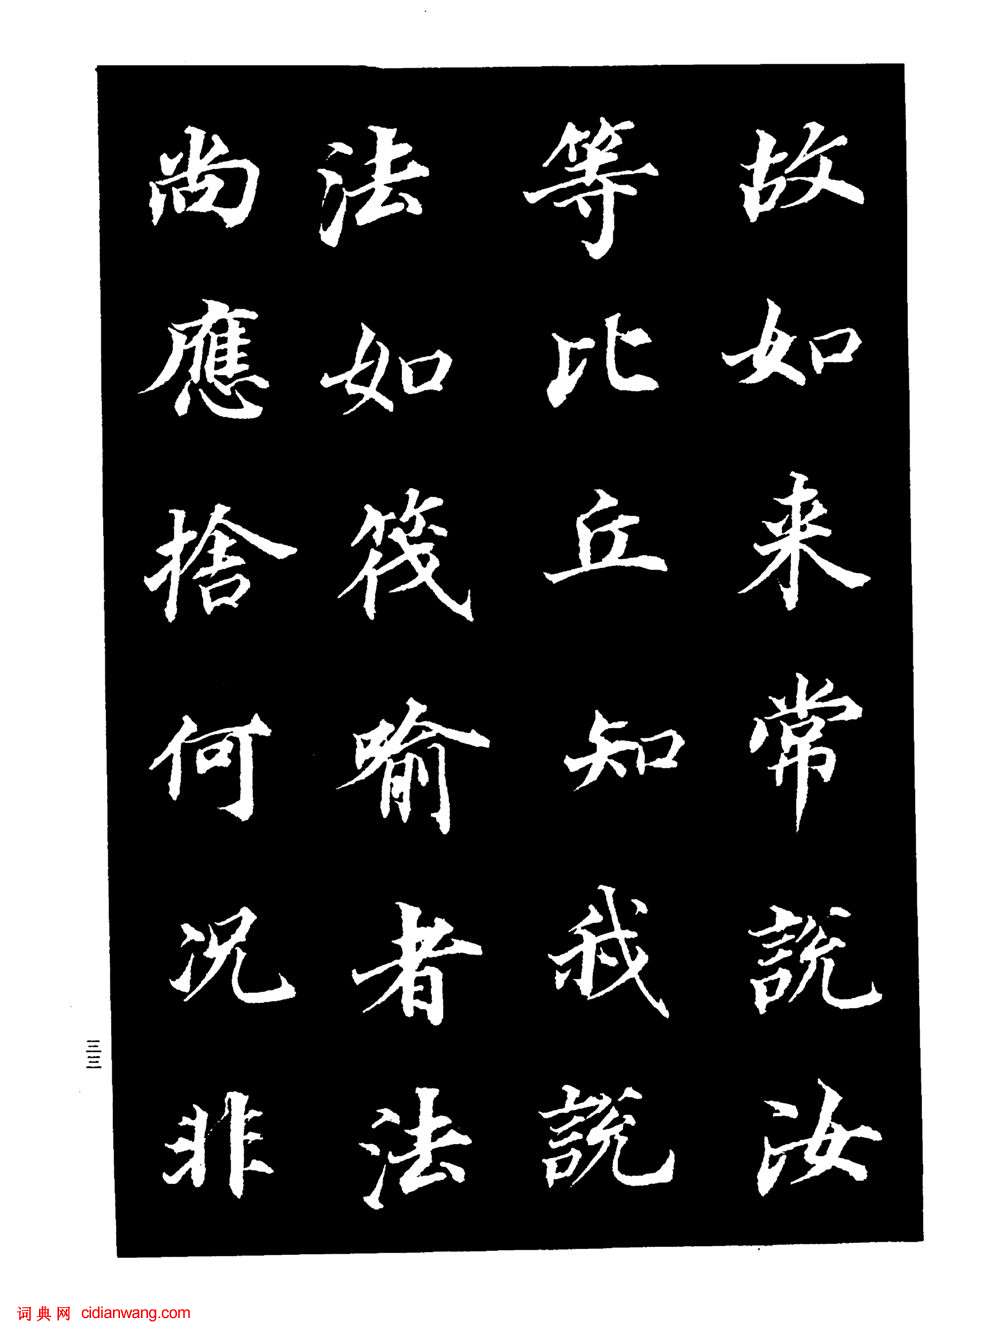 故如来常說汝
等比丘知我說
法如筏喻者法
尚應捨何況非
三三
词典网 cidianwang.com